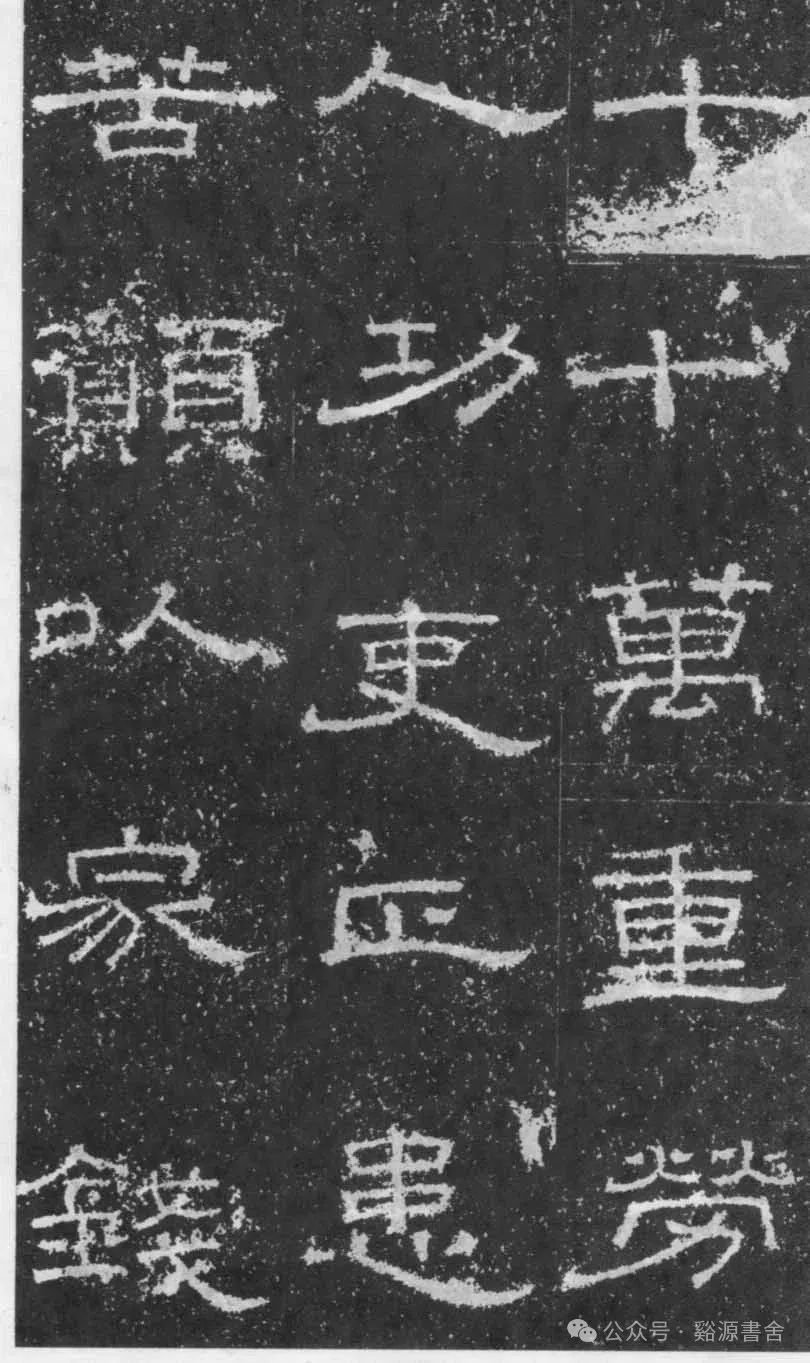 七十萬重勞
人功吏正患
苦願以家錢
公众号 · 谿源書舍